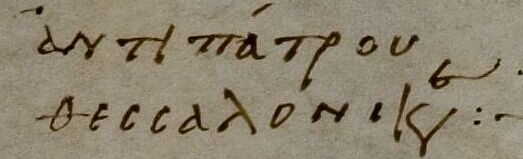 ἀντιπάτρου
θεσσαλονικέως :-